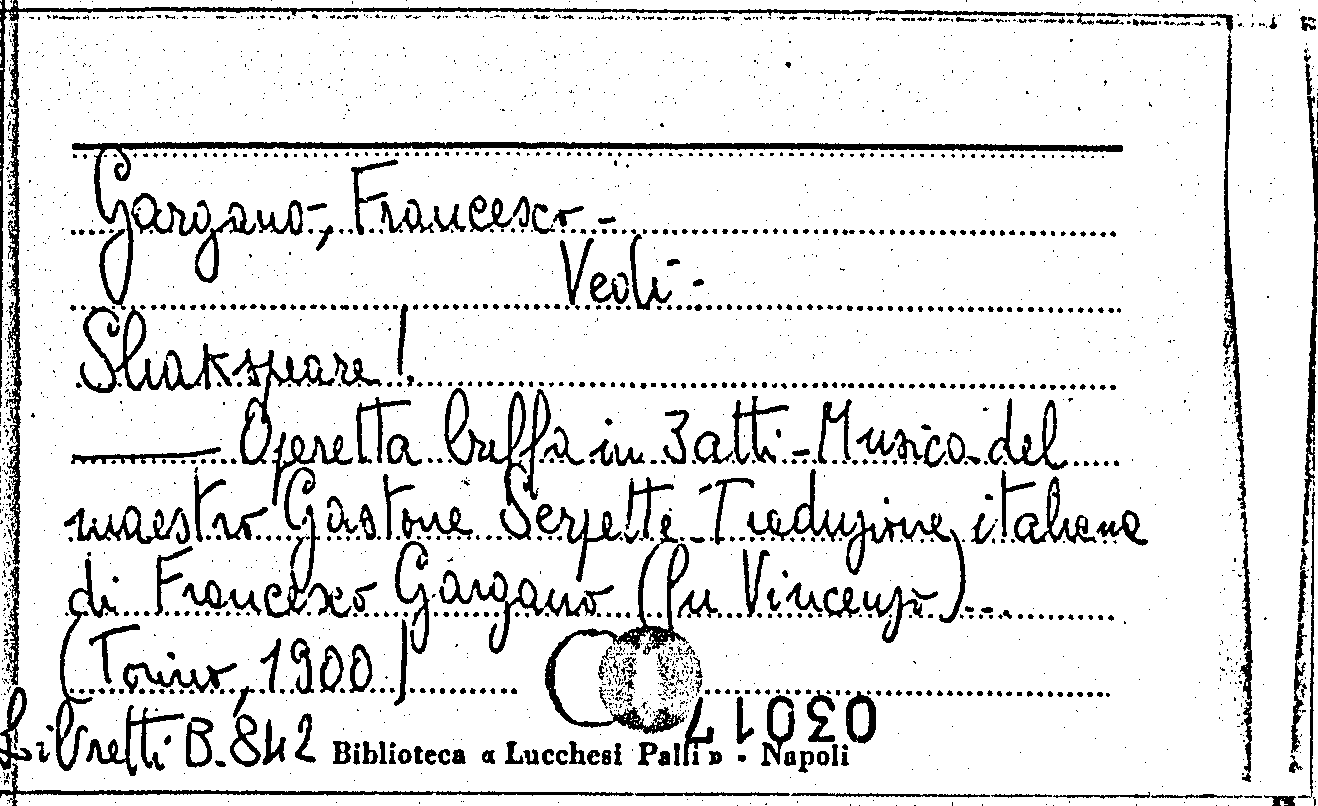 Gargano, Francesco -
Vedi -
Shakspeare!
Operetta buffa in 3 atti - Musica del
maestro Gastone Serpette - Traduzione italiana
di Francesco Gargano (fu Vincenzo)...
(Torino, 1900)
Libretti B. 842 Biblioteca « Lucchesi Palli » - Napoli
03017